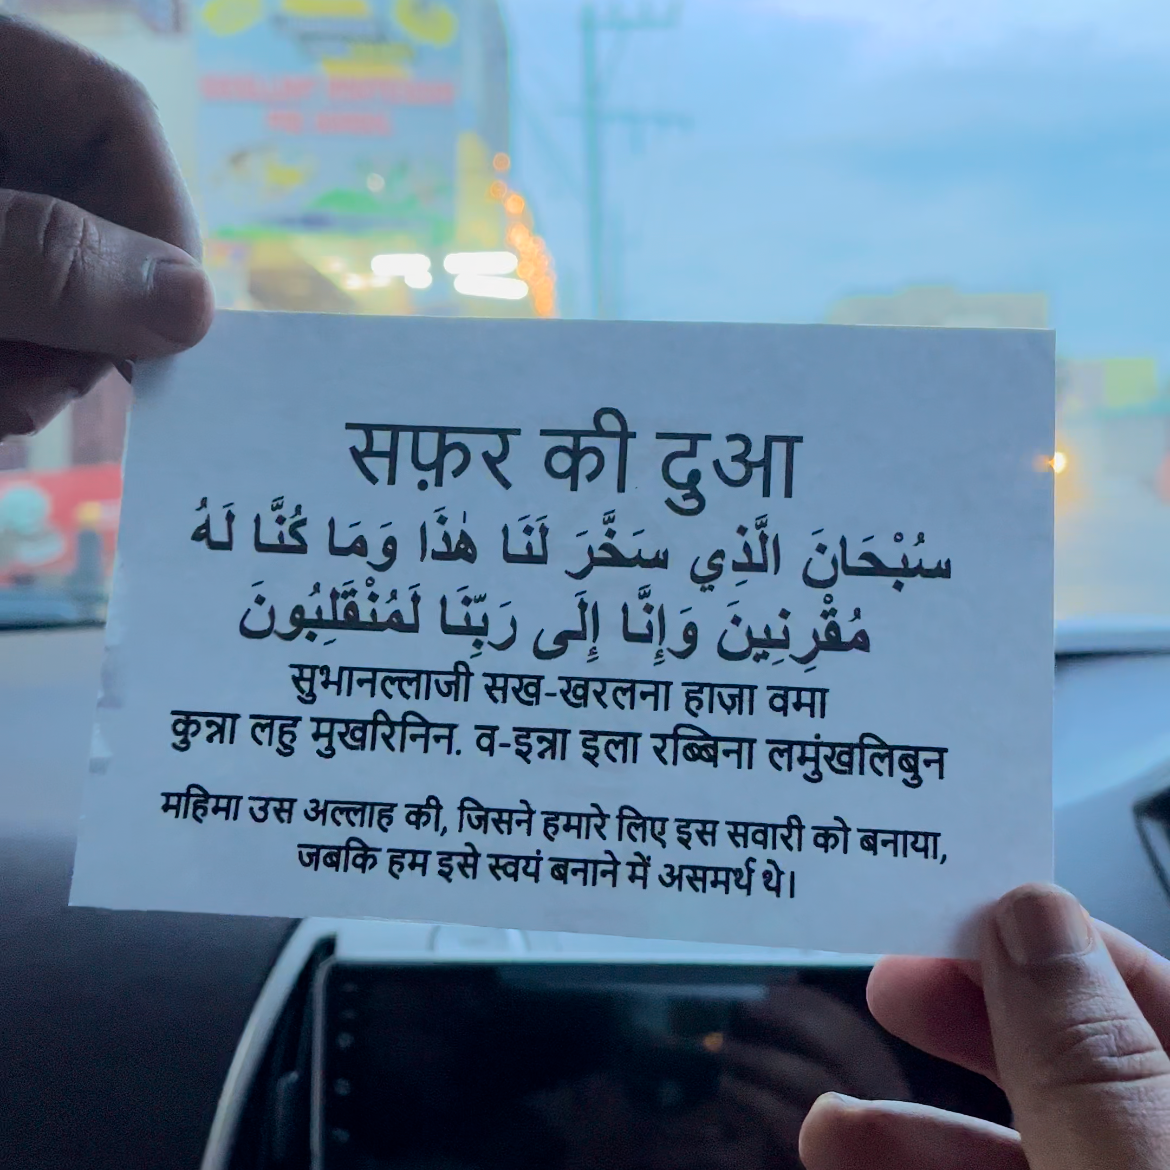 सफ़र की दुआ
سُبْحَانَ الَّذِي سَخَّرَ لَنَا هٰذَا وَمَا كُنَّا لَهُ
مُقْرِنِينَ وَإِنَّا إِلَى رَبِّنَا لَمُنْقَلِبُونَ
सुभानल्लाजी सख-खरलना हाज़ा वमा
कुन्ना लहु मुखरिनिन. व-इन्ना इला रब्बिना लमुंखलिबुन
महिमा उस अल्लाह की, जिसने हमारे लिए इस सवारी को बनाया,
जबकि हम इसे स्वयं बनाने में असमर्थ थे।